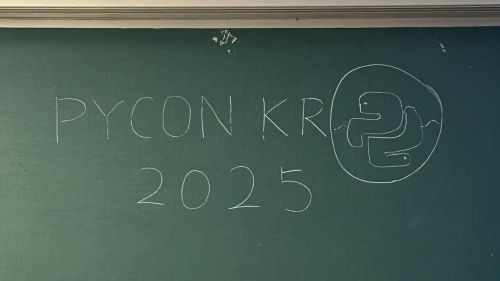 PYCON KR
2025